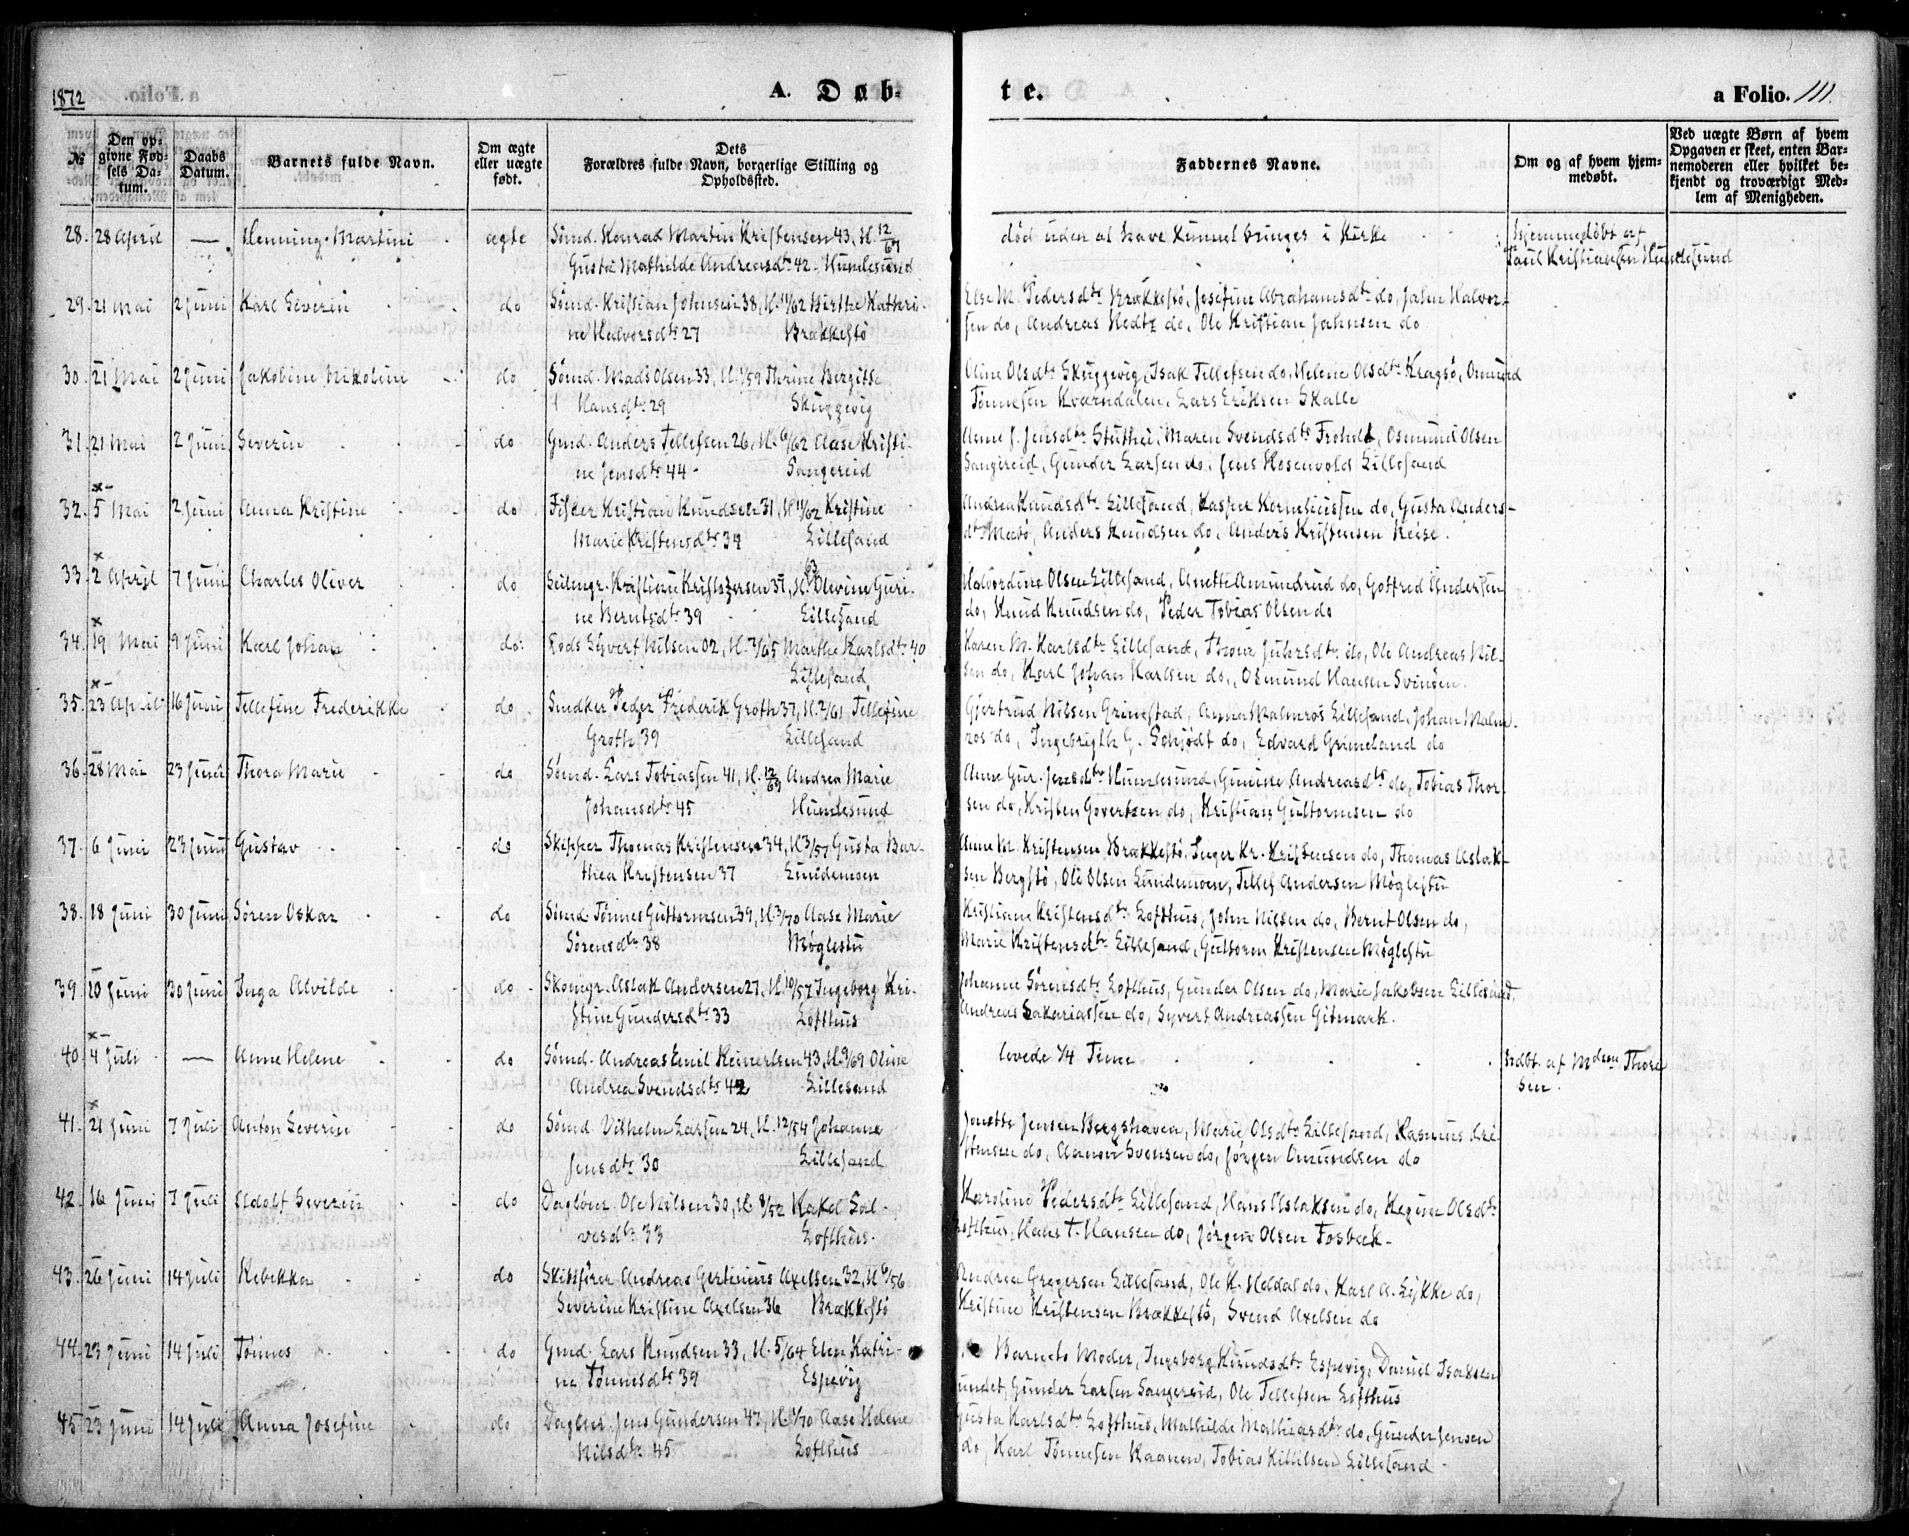 1872
A. Døb-
te.
a Folio. 111.
№
Den opgivne Fødsels Datum.
Daabs Datum.
Barnets fulde Navn.
Om ægte eller uægte født.
Dets Forældres fulde Navn, borgerlige Stilling og Opholdssted.
Faddernes Navne.
Om og af hvem hjemmedøbt.
Ved uægte Børn af hvem Opgaven er skeet, enten Barnemoderen eller hvilket bekjendt og troværdigt Medlem af Menigheden.
28. 28 April — Henning Martini ægte Sømd. Konrad Martin Kristensen 43, H. 12/67 død uden at have kunnet bringes i Kirke Hjemmedøbt af
Gusta Mathilde Andreasdtr 42 Humlesund Paul Kristiansen Humlesund
29. 21 Mai 2 Juni Karl Severin do Sømd. Kristian Johnsen 38, H. 11/62 Birthe Kathri- Else M. Pedersdtr Brækkestø, Josefine Abrahamsdtr do, John Halvor-
ne Halvorsdtr 27 Brækkestø sen do, Andreas Hedtz do, Ole Kristian Johnsen do
30. 21 Mai 2 Juni Jakobine Nikoline do Sømd. Mads Olsen 33, H. 1/59 Thrine Bergitte Oline Olsdtr Skuggevig, Isak Tellefsen do, Helene Olsdtr Kragsø, Osmund
Hansdtr 29 Skuggevig Tønnesen Kværndalen, Lars Eriksen Skalle
31. 21 Mai 2 Juni Severin do Gmd. Anders Tellefsen 26, H. 6/62 Aase Kristi- Anne J. Jensdtr Stuthei, Maren Svendsdtr Froholt, Osmund Olsen
ne Jensdtr 44 Sangereid Sangereid, Gunder Larsen do, Jens Rosenvold Lillesand
32. 5 Mai 2 Juni Anna Kristine do Fisker Kristian Knudsen 31, H 11/62 Kristine Andrea Knudsdtr Lillesand, Kasper Korneliussen do, Gusta Anders-
Marie Kristensdtr 34 Lillesand dtr Mebø, Anders Knudsen do, Anders Kristensen Reise.
33. 2 April 7 Juni Charles Oliver do Seilmgr. Kristian Kristofersen 37, H. 63 Olevine Guri- Halvordine Olsen Lillesand, Anette Amundrud do, Gotfred Andersen
ne Berntsdtr 39 Lillesand do, Knud Knudsen do, Peder Tobias Olsen do
34. 19 Mai 9 Juni Karl Johan do. Lods Syvert Nilsen 02, H. 7/65 Marthe Karlsdtr 40 Karen M. Karlsdtr Lillesand, do, Ole Andreas Nil-
Lillesand sen do, Karl Johan Karlsen do, Osmund Hansen Svinøen.
35. 23 April 16 Juni Tellefine Frederikke do Snedker Peder Frederik Groth 37, H. 2/61 Tellefine Gjertrud Nilsen Grimstad, Anna Malmros Lillesand, Johan Malm-
Groth 39 Lillesand ros do, Ingebrigth G. Schjødt do, Edvard Grimeland do
36. 28 Mai 23 Juni Thora Marie do Sømd. Lars Tobiassen 41, H. 12/69 Andrea Marie Anne Gur. Jensdtr Humlesund, Gunine Andreasdtr do, Tobias Thor-
Johansdtr 45 Humlesund sen do, Kristen Govertsen do, Kristian Guttormsen do
37. 6 Juni 23 Juni Gustav do Skipper Thomas Kristensen 34, H. 3/57 Gusta Bar- Anne M. Kristensen Brækkestø, Inger Kr. Kristensen do, Thomas Aslak-
thea Kristensen 37 Lundemoen sen Bergstø, Ole Olsen Lundemoen, Tellef Andersen Møglestu
38. 18 Juni 30 Juni Søren Oskar do Sømd Tønnes Guttormsen 39, H. 3/70 Aase Marie Kristiane Kristensdtr Lofthus, John Nilsen do, Bernt Olsen do,
Sørensdtr 38 Møglestu Marie Kristensdtr Lillesand, Guttorm Kristensen Møglestu
39. 20 Juni 30 Juni Inga Alvilde do Skomgr. Aslak Andersen 27, H. 10/57 Ingeborg Kri- Johanne Sørensdtr Lofthus, Gunder Olsen do, Marie Jakobsen Lillesand,
stine Gundersdtr 33 Lofthus Andreas Sakariassen do, Syvert Andreassen Gitmark.
40. 4 Juli — Anne Helene do Sømd. Andreas Emil Reinertsen 43, H. 9/69 Oline levede 1/4 Time Hdbt. af Mdem Thore
Andrea Svendsdtr 42 Lillesand sen.
41. 21 Juni 7 Juli Anton Severin do Sømd. Vilhelm Larsen 24, H. 12/54 Johanne Jonette Jensen Bergshaven, Marie Olsdtr Lillesand, Rasmus Kri-
Jensdtr 30 Lillesand stensen do, Aanon Svensen do, Jørgen Amundsen do
42. 16 Juni 7 Juli Adolf Severin do Dagløn. Ole Nilsen 30, H. 8/52 Rakel Sal- Karoline Pedersdtr Lillesand, Hans Aslaksen do, Regine Olsdtr
vesdtr 33 Lofthus. Lofthus, Hans T. Hansen do, Jørgen Olsen Fosbæk
43. 26 Juni 14 Juli Rebekka do Skibsfører Andreas Gertinius Axelsen 32, H 6/56 Andrea Gregersen Lillesand, Ole K. Heldal do, Karl A. Lykke do,
Severine Kristine Axelsen 36 Brækkestø Kristine Kristensen Brækkestø, Svend Axelsen do
44. 23 Juni 14 Juli Tønnes do Gmd. Lars Knudsen 33, H. 5/64 Elen Katri- Barnets Moder, Ingeborg Knudsdtr Espevig, Daniel Isaksen
ne Tønnesdtr 39 Espevig Gunder Larsen Sangereid, Ole Tellefsen Lofthus
45 23 Juni 14 Juli Anna Josefine do Dagløn. Jens Gundersen 47, H. 1/70 Aase Helene Gusta Karlsdtr Lofthus, Mathilde Mathiasdtr do, Gunder Jensen
Nilsdtr 45 Lofthus do, Karl Tønnesen Kaanen, Tobias Kittilsen Lillesand